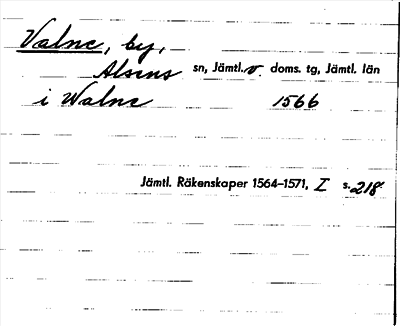 Valne, by,
Alsens sn, Jämtl. v. doms. tg, Jämtl. län
i Walne 1566
Jämtl. Räkenskaper 1564–1571, I s. 218.